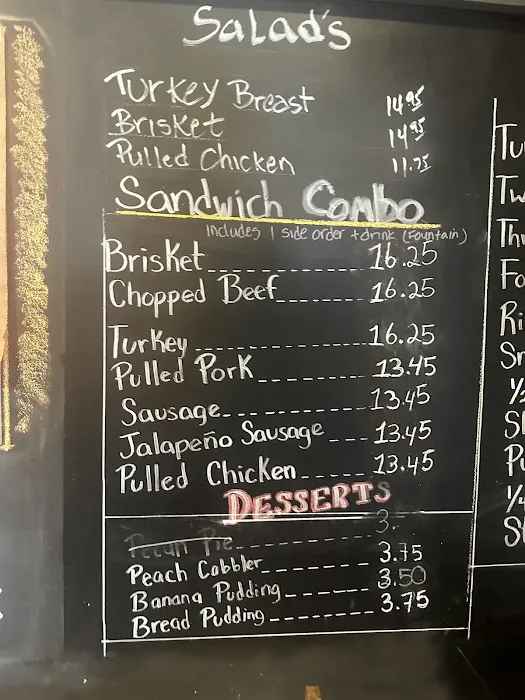 Salad's
Turkey Breast 14.95
Brisket 14.95
Pulled Chicken 11.75
Sandwich Combo
Includes 1 side order + drink (Fountain)
Brisket 16.25
Chopped Beef 16.25
Turkey 16.25
Pulled Pork 13.45
Sausage 13.45
Jalapeño Sausage 13.45
Pulled Chicken 13.45
DESSERTS
Pecan Pie 3.
Peach Cobbler 3.75
Banana Pudding 3.50
Bread Pudding 3.75
Tu
Tw
Th
Fo
Ri
S
1/
S
Pu
1/4
S